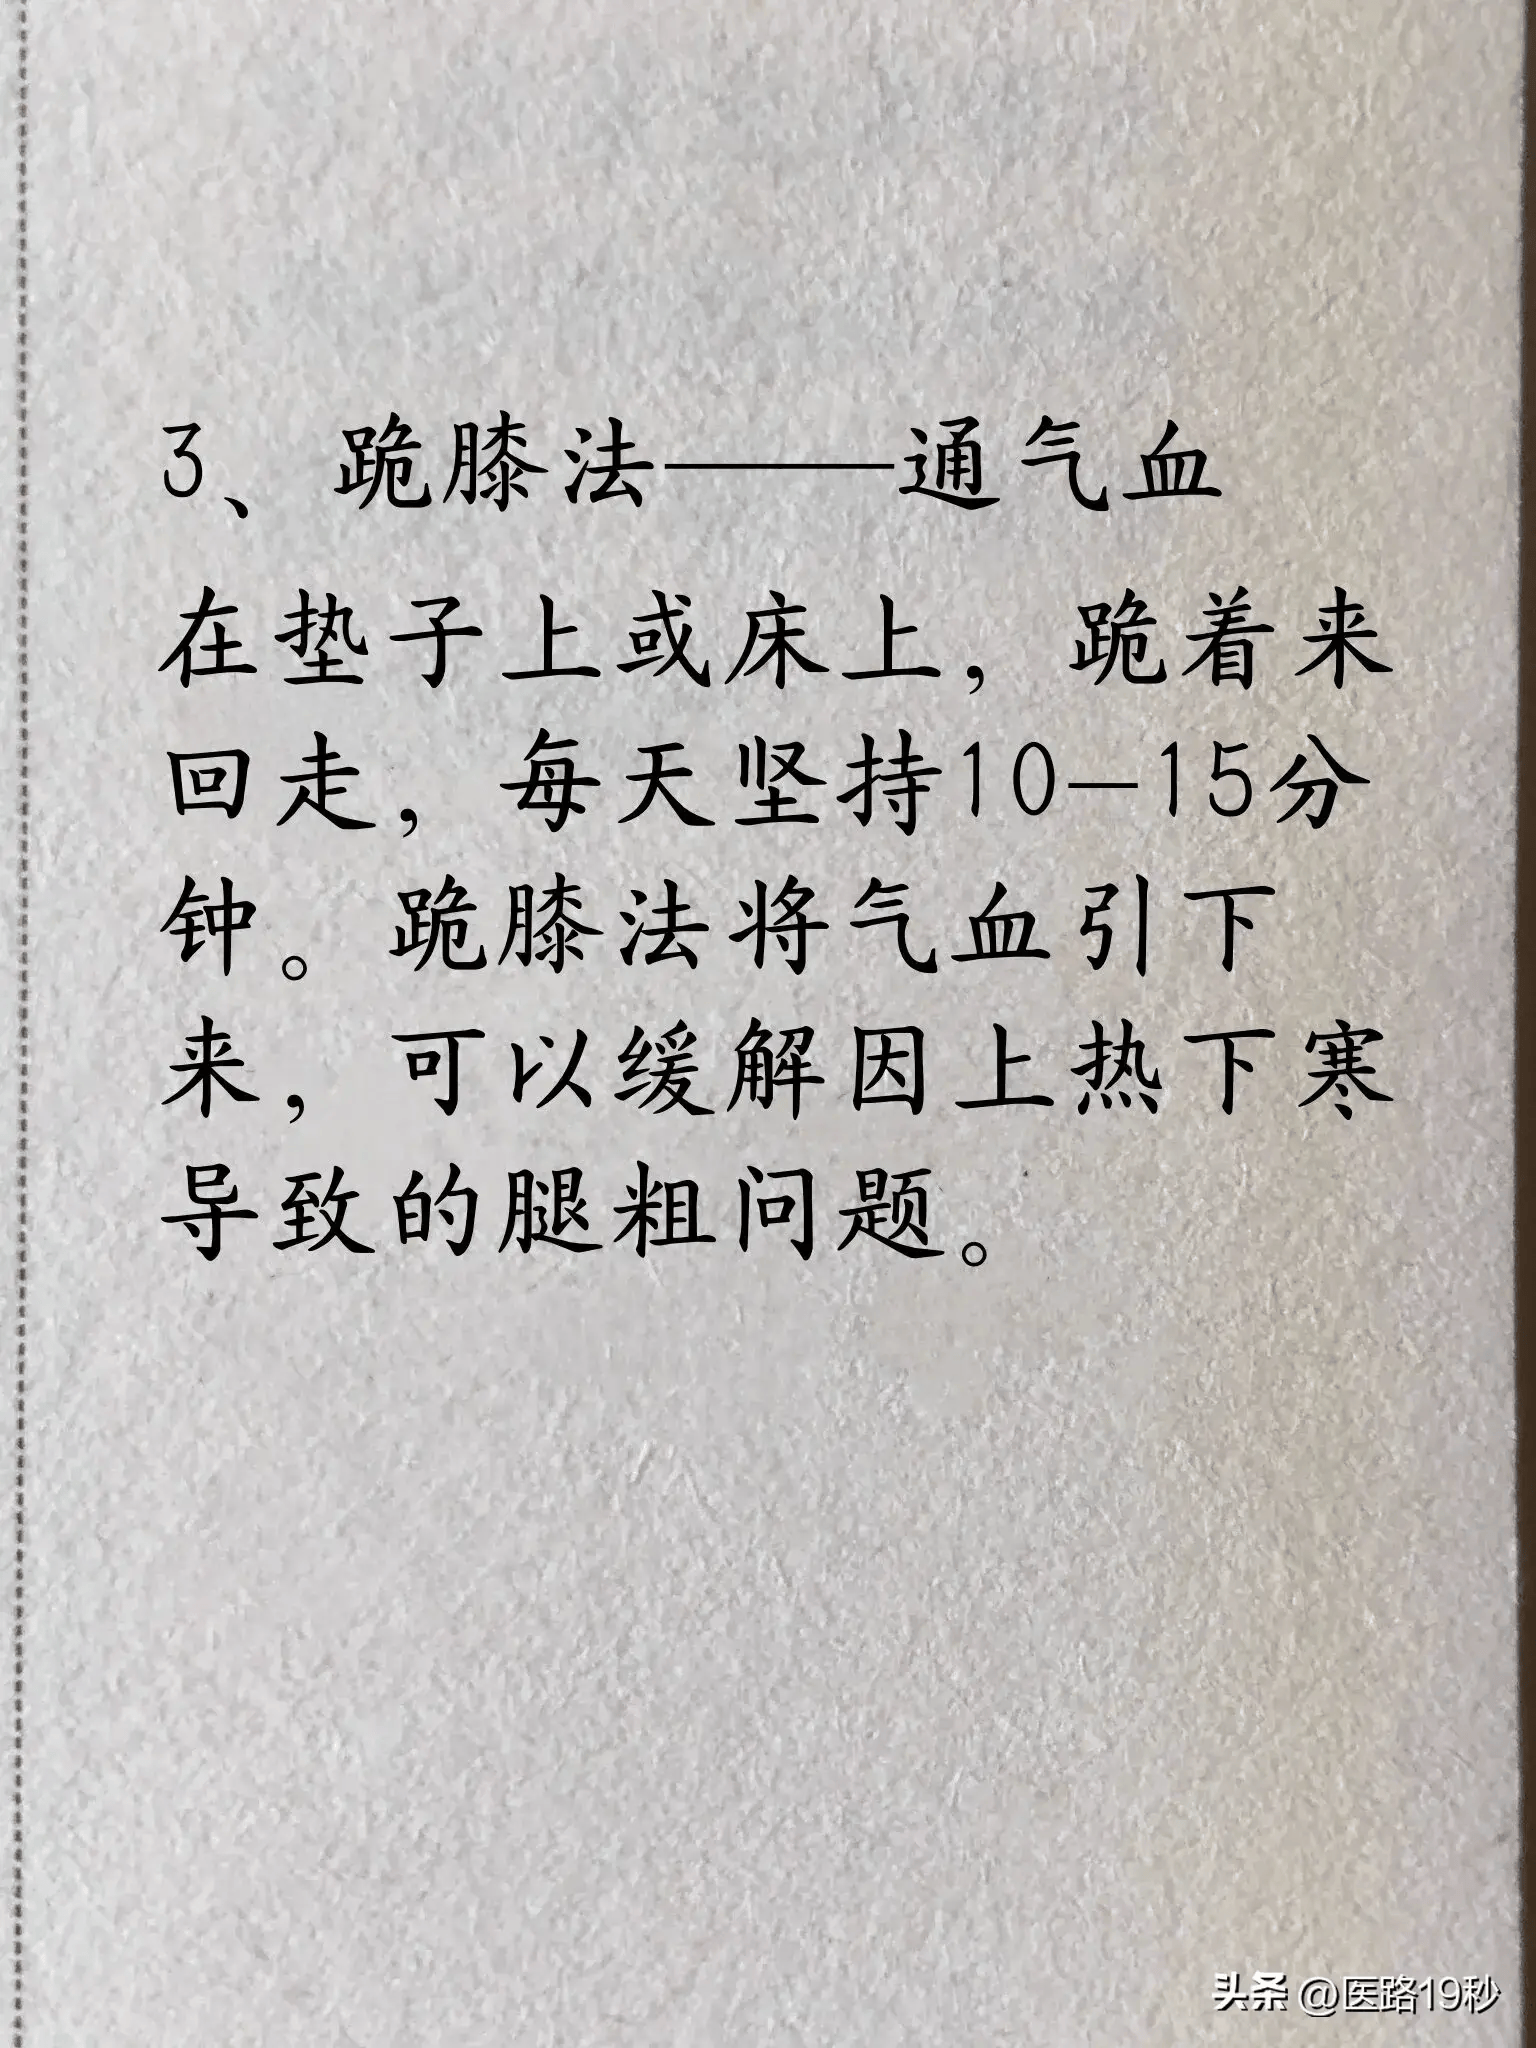 3、跪膝法——通气血
在垫子上或床上，跪着来
回走，每天坚持10-15分
钟。跪膝法将气血引下
来，可以缓解因上热下寒
导致的腿粗问题。
头条 @医路19秒